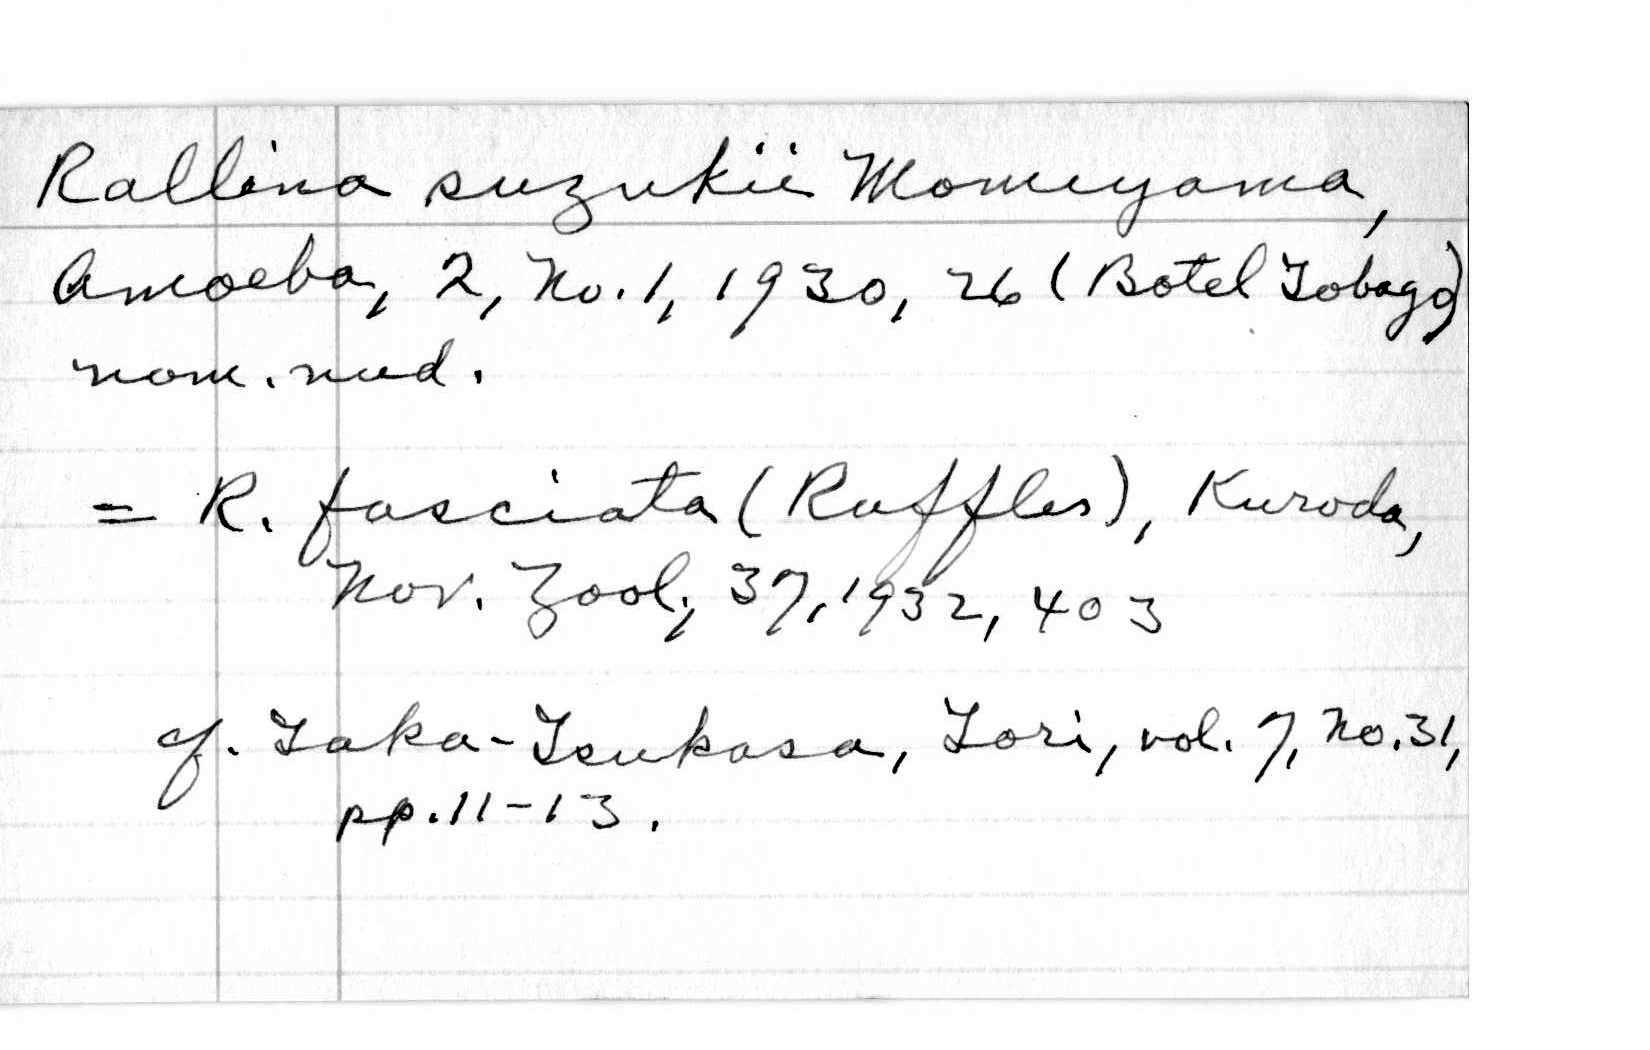 Rallina suzukii Momiyama,
Amoeba, 2, No. 1, 1930, 26 (Botel Tobago)
nom. nud.
= R. fasciata (Raffles), Kuroda,
Nov. Zool., 37, 1932, 403
cf. Taka-Tsukasa, Tori, vol. 7, No. 31,
pp. 11-13.